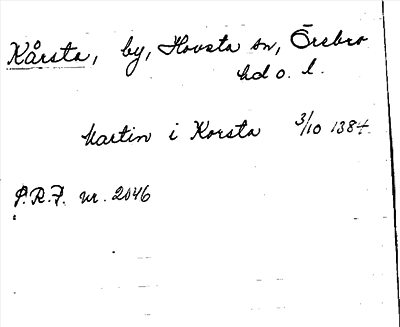 Kårsta, by, Hovsta sn, Örebro
hd o. l.
Martin i Korsta 3/10 1384.
P.R.F. nr. 2046